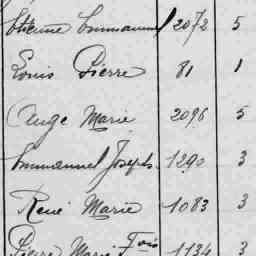 Etienne Emmanuel 2072 5
Louis Pierre 81 1
Ange Marie 2096 5
Emmanuel Joseph 1290 3
René Marie 1083 3
Pierre Marie Fois 1134 3